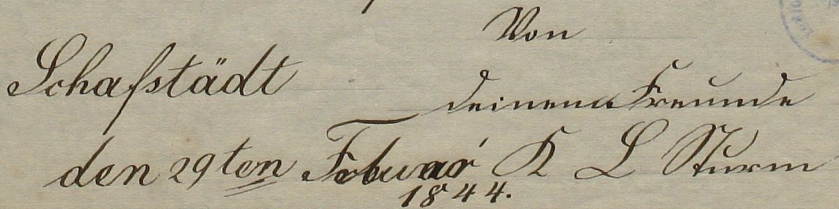 Von
Schafstädt
deinem Freunde
den 29ten Februar K L Sturm
1844.